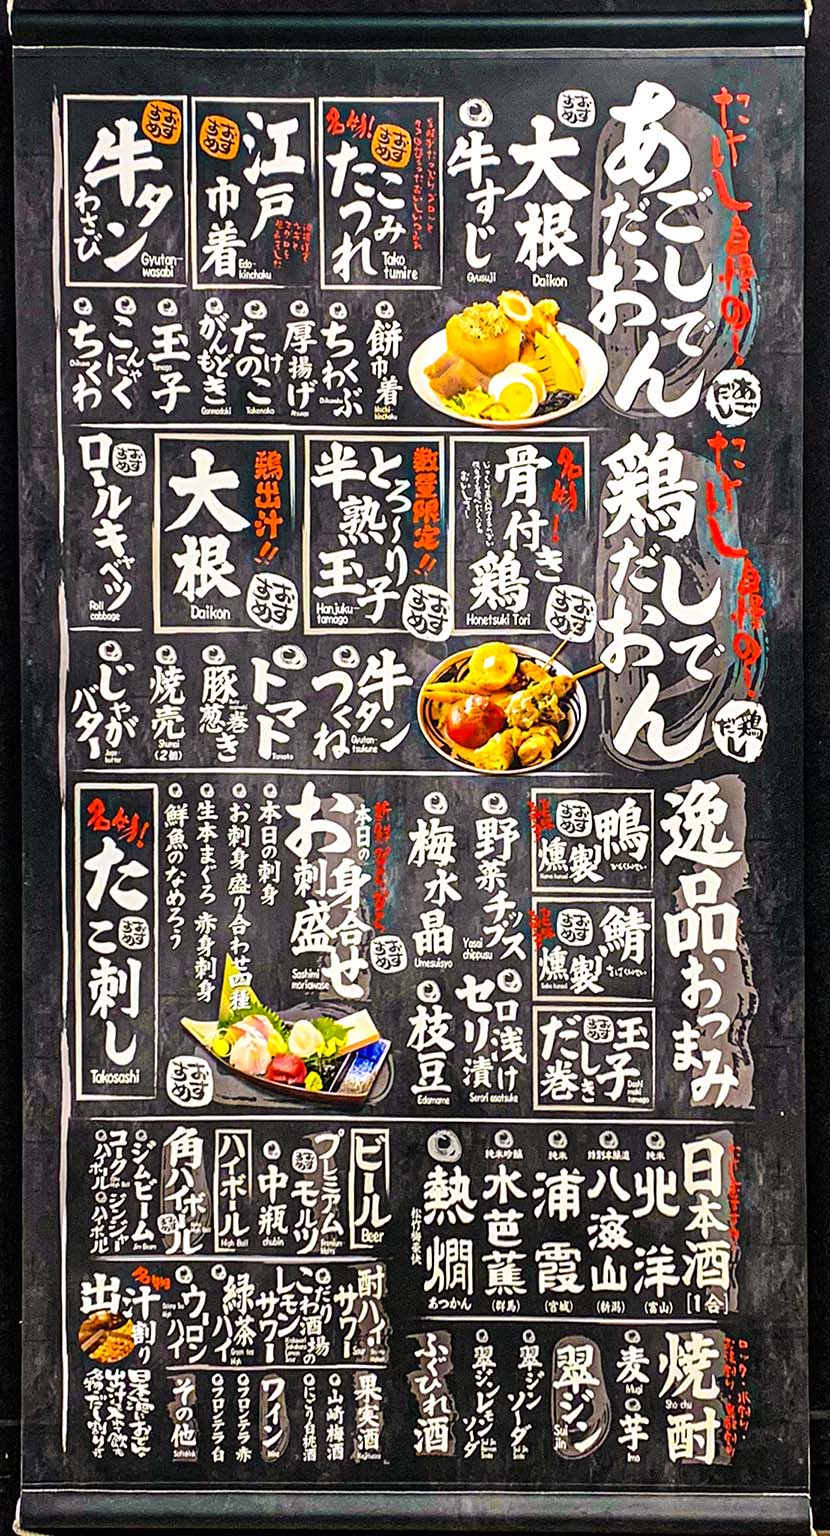 たけし自慢の！
あごだし
おでん
あごだし
大根
Daikon
おすすめ
牛すじ
Gyusuji
名物！
おすすめ
たこつみれ
Tako
tumire
江戸巾着
おすすめ
Edo-
kinchaku
牛タン
わさび
おすすめ
Gyutan-
wasabi
餅巾着
Mochi-
kinchaku
ちくわぶ
厚揚げ
たけのこ
Takenoko
がんもどき
Ganmodoki
玉子
Tamago
こんにゃく
ちくわ
たけし自慢の！
鶏だし
おでん
鶏だし
名物！
骨付き鶏
Honetsuki Tori
おすすめ
数量限定！！
とろ〜り
半熟玉子
Hanjuku-
tamago
おすすめ
鶏出汁！！
大根
Daikon
おすすめ
ロールキャベツ
おすすめ
Roll
cabbage
牛タン
つくね
Gyutan-
tsukune
トマト
Tomato
豚葱巻き
焼売
Shumai
(2個)
じゃがバター
Jaga-
butter
逸品おつまみ
鴨燻製
おすすめ
鯖燻製
おすすめ
玉子
だし巻き
おすすめ
Dashi
maki
tamago
野菜チップス
Yasai
chippusu
セロリ浅漬け
Serori asatsuke
梅水晶
Umesuisyo
枝豆
Edamame
本日の
お刺身
盛合せ
おすすめ
Sashimi
moriawase
本日の刺身
お刺身盛り合わせ四種
生本まぐろ 赤身刺身
鮮魚のなめろう
おすすめ
名物！
たこ刺し
おすすめ
Takosashi
日本酒
[1合]
純米
北洋
(富山)
特別本醸造
八海山
(新潟)
純米
浦霞
(宮城)
純米吟醸
水芭蕉
(群馬)
熱燗
あつかん
松竹梅豪快
ビール
Beer
プレミアム
モルツ
Premium
Malts
中瓶
chubin
ハイボール
High Ball
角ハイボール
ジムビーム
Jim Beam
コークハイボール
ジンジャーハイボール
焼酎
Sho chu
麦
Mugi
芋
Imo
翠ジン
Sui
jin
翠ジンソーダ
翠ジンレモンソーダ
ふぐひれ酒
酎ハイ
サワー
こだわり酒場の
レモンサワー
緑茶ハイ
Green tea
High
ウーロンハイ
Oolong tea
High
名物
出汁割り
果実酒
山崎梅酒
にごり白桃酒
ワイン
Wine
フロンテラ 赤
フロンテラ 白
その他
Softdrink